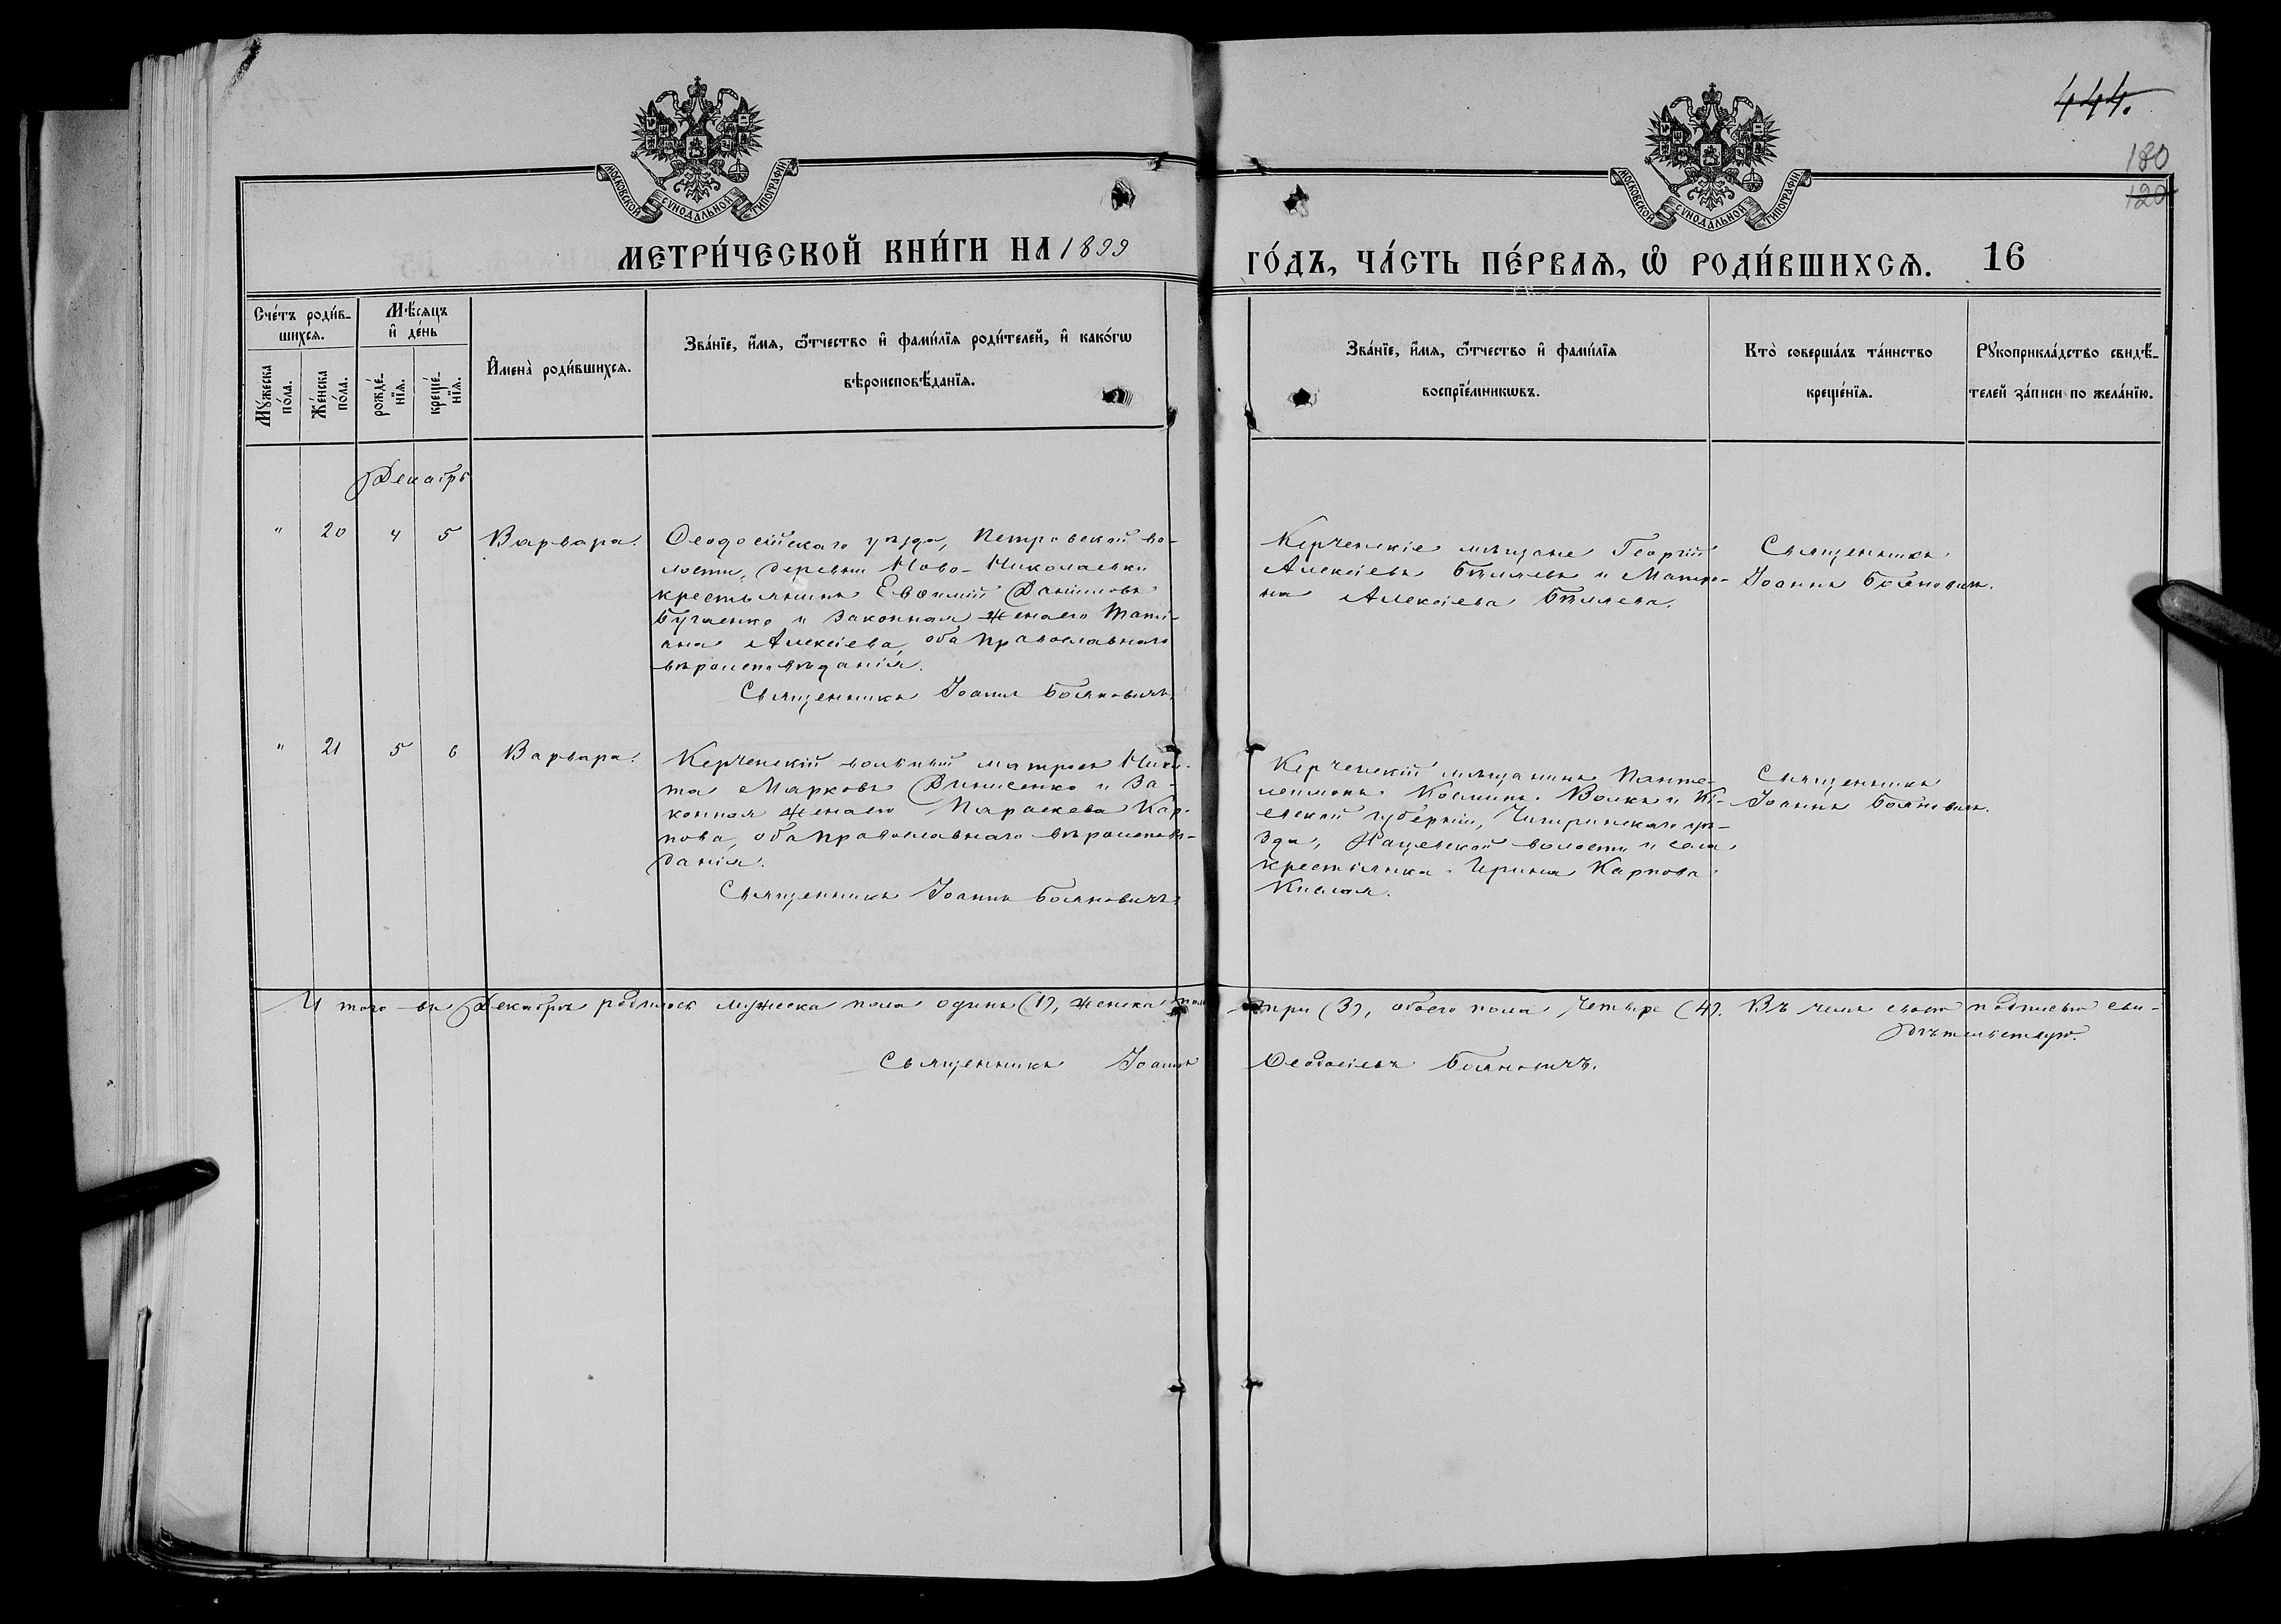 444.
180
120
МОСКОВСКОЙ СѴНОДАЛЬНОЙ ТИПОГРАФІИ
МОСКОВСКОЙ СѴНОДАЛЬНОЙ ТИПОГРАФІИ
МЕТРИ́ЧЕСКОЙ КНИ́ГИ НА 1899
ГО́ДЪ, ЧА́СТЬ ПЕ́РВАѦ, Ѽ РОДИ́ВШИХСѦ. 16
Сче́тъ роди́в-
шихсѧ.
Мꙋ́жеска
по́ла.
Же́нска
по́ла.
Мѣ́сѧцъ
и҆ де́нь
рожде́-
нїѧ.
креще́-
нїѧ.
И҆мена̀ роди́вшихсѧ.
Зва́нїе, и҆́мѧ, ѻ҆́тчество и҆ фами́лїѧ роди́телей, и҆ како́гѡ
вѣроисповѣ́данїѧ.
Зва́нїе, и҆́мѧ, ѻ҆́тчество и҆ фами́лїѧ
воспрїе́мникѡвъ.
Кто̀ соверша́лъ та́инство
креще́нїѧ.
Рꙋкоприкла́дство свидѣ́-
телей за́писи по жела́нїю.
Декабрь
" 20 4 5 Варвара.
Ѳеодосійскаго уѣзда, Петровской во-
лости, деревни Ново-Николаевки
крестьянинъ Евѳимій Даніиловъ
Бугаенко и законная жена его Тати-
ана Алексіева, оба православнаго
вѣроисповѣданія.
Священникъ Іоаннъ Бояновичъ.
Керченскіе мѣщане Георгій
Алексіевъ Бѣляевъ и Матро-
на Алексіева Бѣляева.
Священникъ
Іоаннъ Бояновичъ.
" 21 5 6 Варвара.
Керченскій вольный матросъ Ники-
та Марковъ Динисенко и за-
конная жена его Параскева Кар-
пова, оба православнаго вѣроисповѣ-
данія.
Священникъ Іоаннъ Бояновичъ.
Керченскій мѣщанинъ Панте-
леимонъ Косминъ Волкъ и Кі-
евской губерніи, Чигиринскаго уѣ-
зда, волости и села
крестьянка Ирина Карпова
Священникъ
Іоаннъ Бояновичъ.
Итого въ Декабрѣ родилось мужеска пола одинъ (1), женска пола три (3), обоего пола четыре (4). Въ чемъ своею подписью сви-
дѣтельствую.
Священникъ Іоаннъ Ѳеодосіевъ Бояновичъ.